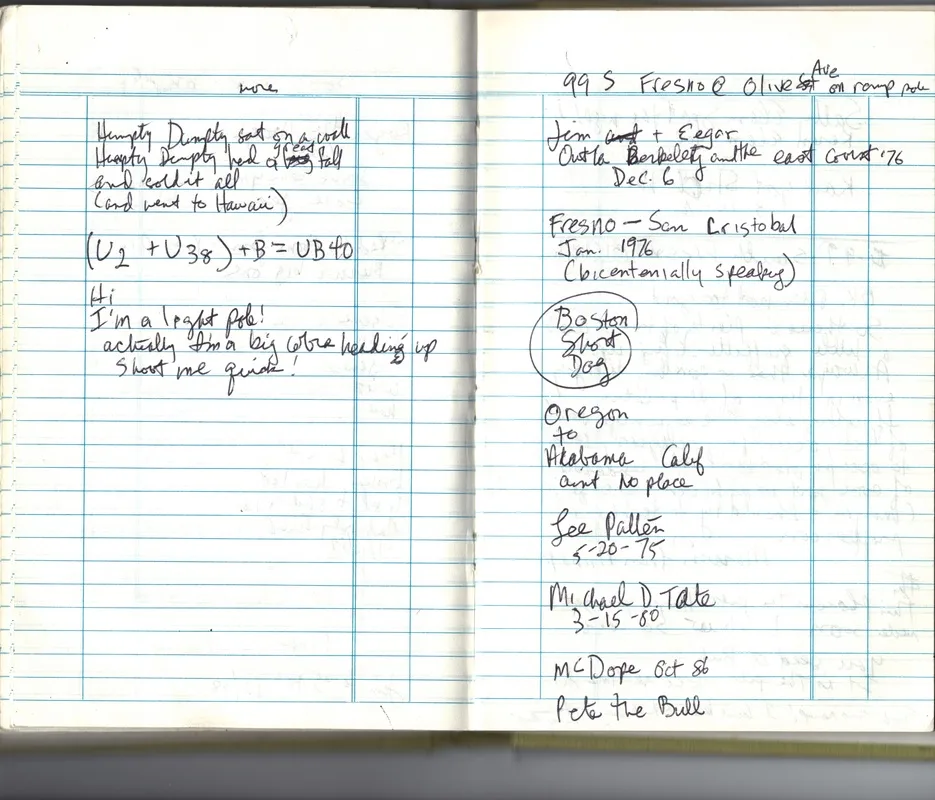 more
Humpty Dumpty sat on a wall
Humpty Dumpty had a great fall
and sold it all
(and went to Hawaii)
(U2 + U38) + B = UB40
Hi
I'm a light pole!
actually I'm a big cobra heading up
Shoot me quick!
99 S Fresno @ Olive Ave on ramp pole
Jim + Eegar
Outta Berkeley and the east Coast '76
Dec. 6
Fresno — San Cristobal
Jan. 1976
(bicentenially speaking)
Boston
Short
Dog
Oregon
to
Alabama Calif
aint no place
Lee Pallen
5-20-75
Michael D. Tate
3-15-80
McDope Oct 86
Pete the Bull